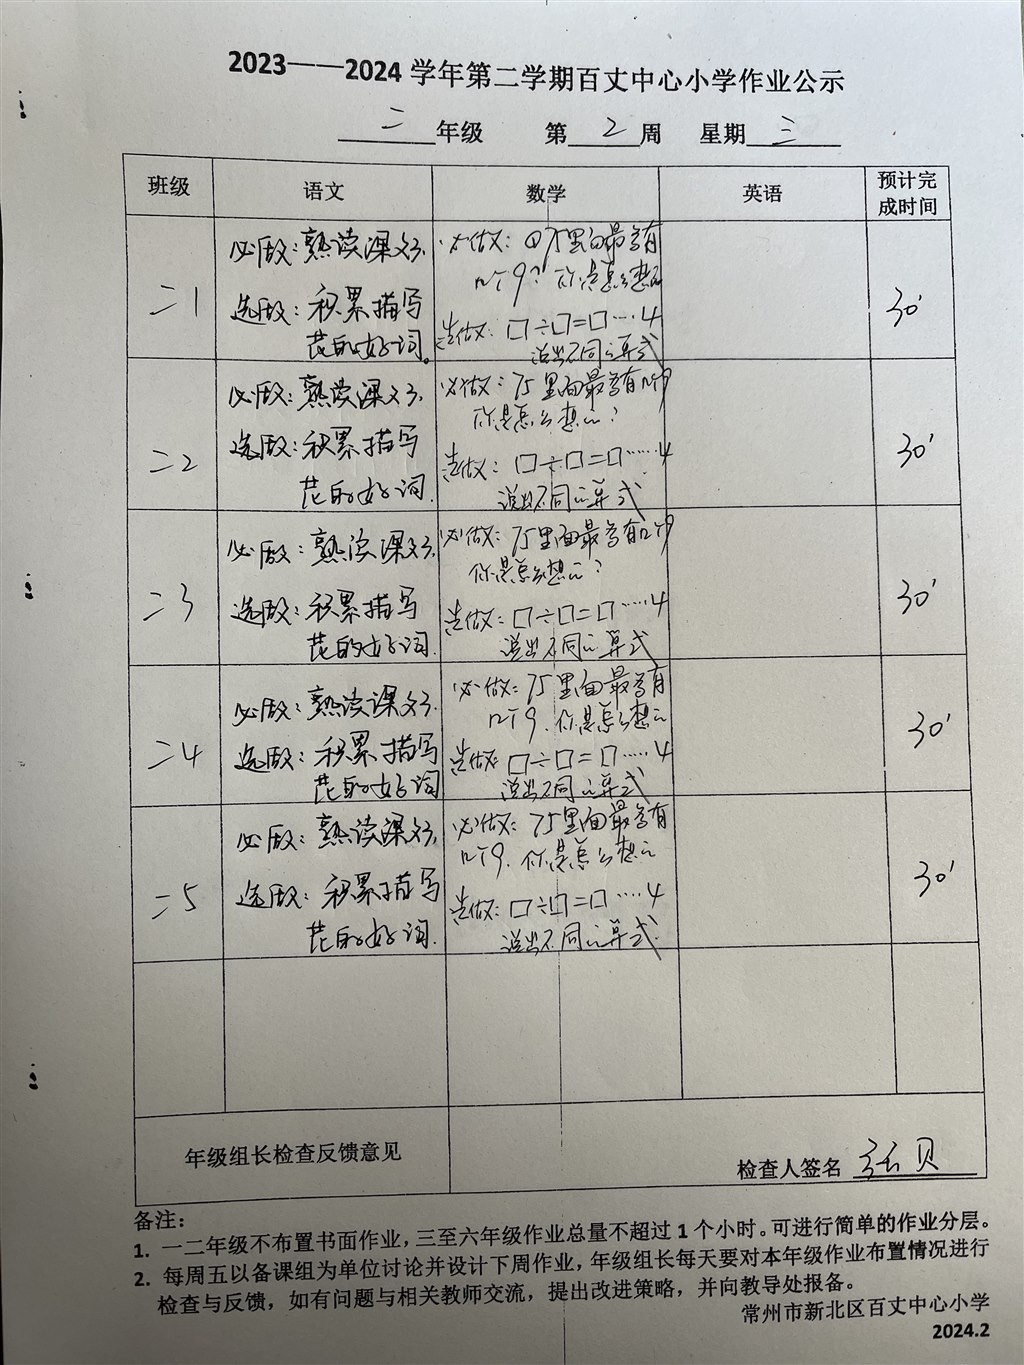 2023——2024 学年第二学期百丈中心小学作业公示
二 年级 第 2 周 星期 三
班级 语文 数学 英语 预计完成时间
二1
必做：熟读课文3，
选做：积累描写
花的好词。
必做：75里面最多有
几个9？你是怎么想的
选做：口÷口=口……4
说出不同的算式
30'
二2
必做：熟读课文3，
选做：积累描写
花的好词.
必做：75里面最多有几个9
你是怎么想的？
选做：口÷口=口……4
说出不同的算式
30'
二3
必做：熟读课文3，
选做：积累描写
花的好词.
必做：75里面最多有几个9
你是怎么想的？
选做：口÷口=口……4
说出不同的算式
30'
二4
必做：熟读课文3.
选做：积累描写
花的好词
必做：75里面最多有
几个9.你是怎么想的
选做：口÷口=口……4
说出不同的算式
30'
二5
必做：熟读课文3，
选做：积累描写
花的好词.
必做：75里面最多有
几个9.你是怎么想的
选做：口÷口=口……4
说出不同的算式.
30'
年级组长检查反馈意见
检查人签名 张贝
备注：
1. 一二年级不布置书面作业，三至六年级作业总量不超过 1 个小时。可进行简单的作业分层。
2. 每周五以备课组为单位讨论并设计下周作业，年级组长每天要对本年级作业布置情况进行
检查与反馈，如有问题与相关教师交流，提出改进策略，并向教导处报备。
常州市新北区百丈中心小学
2024.2